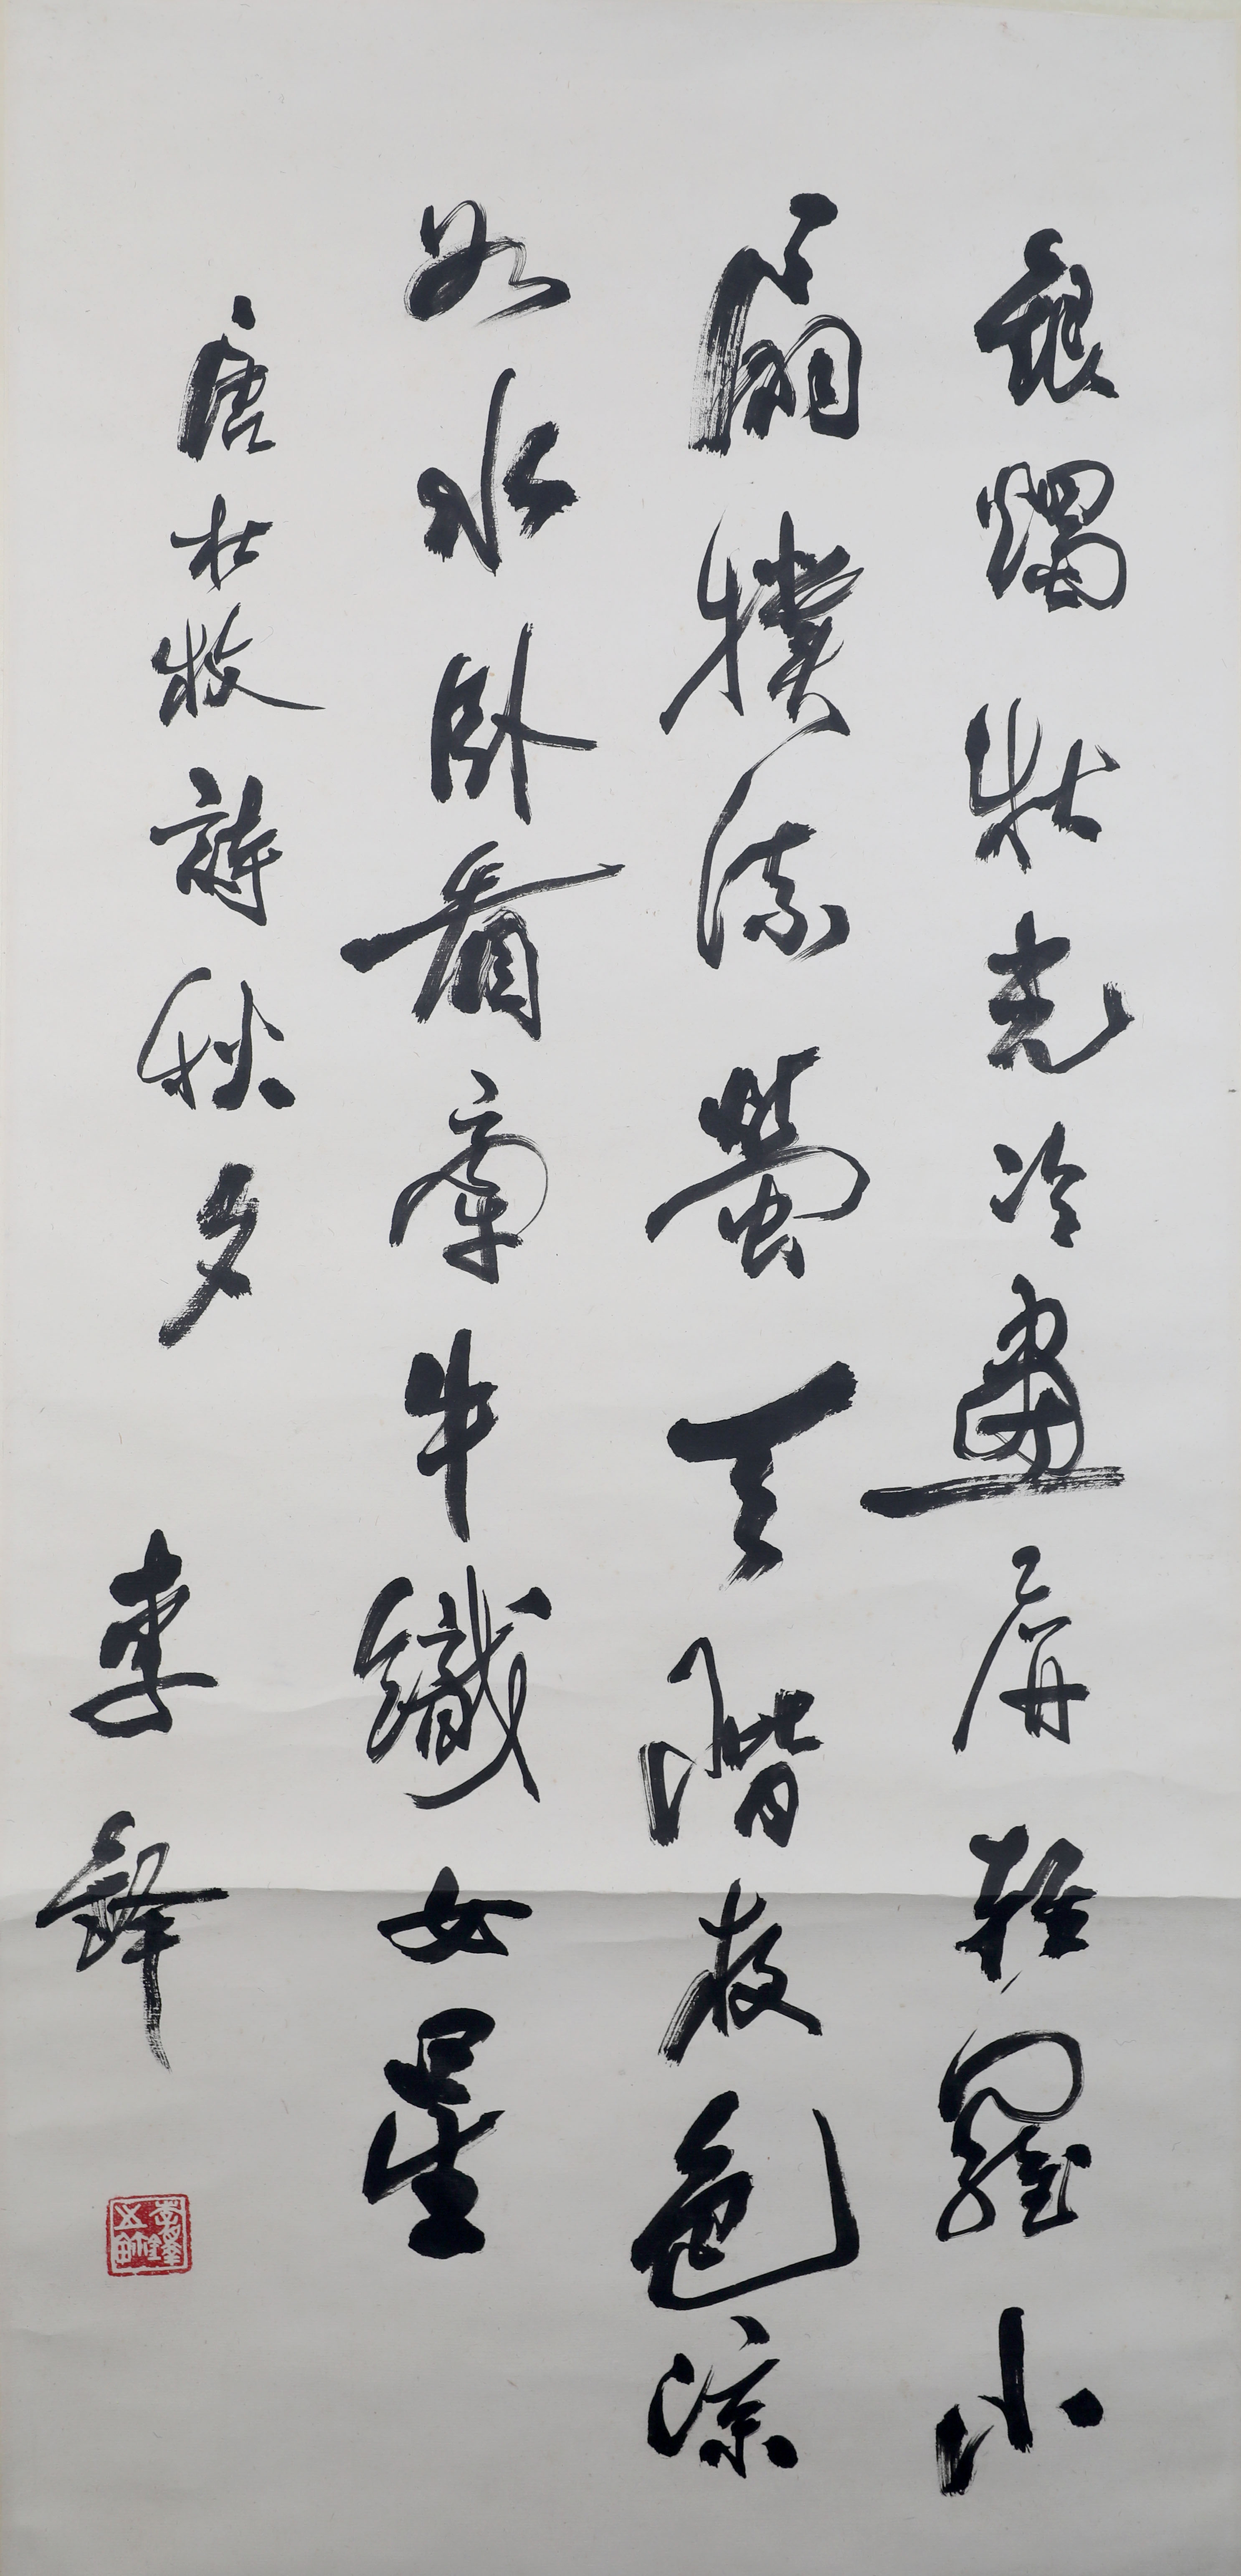 銀燭秋光冷畫屏輕羅小
扇撲流螢天階夜色涼
如水卧看牽牛織女星
唐杜牧詩秋夕
李鐸